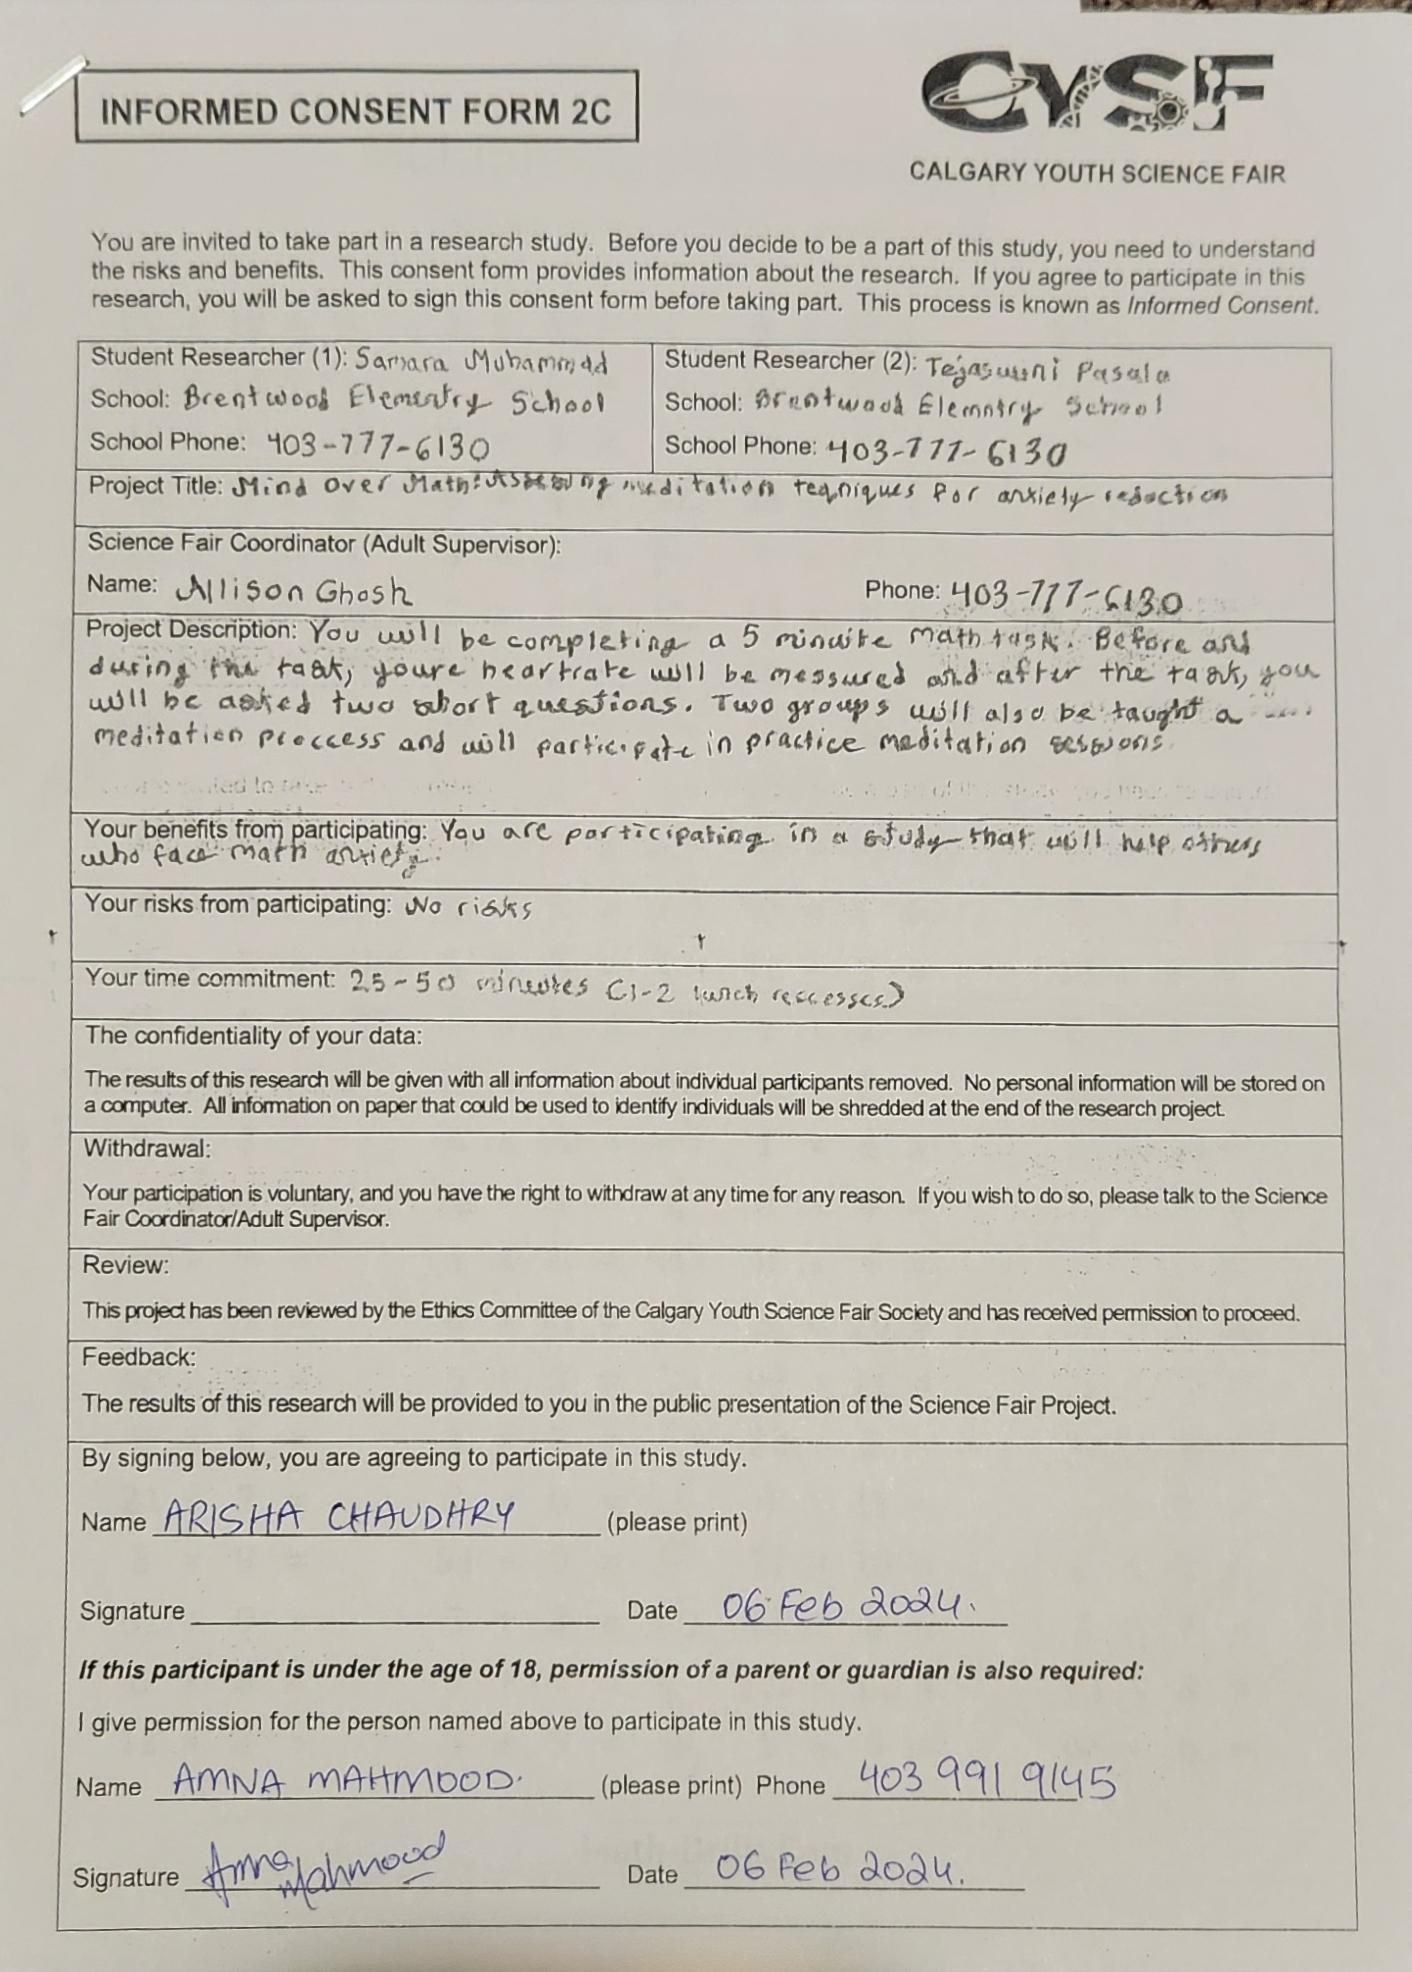 INFORMED CONSENT FORM 2C
CYSF
CALGARY YOUTH SCIENCE FAIR
You are invited to take part in a research study. Before you decide to be a part of this study, you need to understand
the risks and benefits. This consent form provides information about the research. If you agree to participate in this
research, you will be asked to sign this consent form before taking part. This process is known as Informed Consent.
Student Researcher (1): Samara Muhammad
School: Brentwood Elementry School
School Phone: 403-777-6130
Student Researcher (2): Tejasuuni Pasala
School: Brentwood Elemntry School
School Phone: 403-777-6130
Project Title: Mind Over Math: Assessing meditation teqniques for anxiety reduction
Science Fair Coordinator (Adult Supervisor):
Name: Allison Ghosh Phone: 403-777-6130
Project Description: You will be completing a 5 minuite math task. Before and
during the task, youre heartrate will be messured and after the task, you
will be asked two short questions. Two groups will also be taught a
meditation proccess and will participate in practice meditation sessions
Your benefits from participating: You are participating in a study that will help others
who face math anxiety.
Your risks from participating: No risks
Your time commitment: 25-50 mineutes (1-2 lunch reccesses)
The confidentiality of your data:
The results of this research will be given with all information about individual participants removed. No personal information will be stored on
a computer. All information on paper that could be used to identify individuals will be shredded at the end of the research project.
Withdrawal:
Your participation is voluntary, and you have the right to withdraw at any time for any reason. If you wish to do so, please talk to the Science
Fair Coordinator/Adult Supervisor.
Review:
This project has been reviewed by the Ethics Committee of the Calgary Youth Science Fair Society and has received permission to proceed.
Feedback:
The results of this research will be provided to you in the public presentation of the Science Fair Project.
By signing below, you are agreeing to participate in this study.
Name ARISHA CHAUDHRY (please print)
Signature Date 06 Feb 2024.
If this participant is under the age of 18, permission of a parent or guardian is also required:
I give permission for the person named above to participate in this study.
Name AMNA MAHMOOD. (please print) Phone 403 991 9145
Signature Amna Mahmood Date 06 Feb 2024.